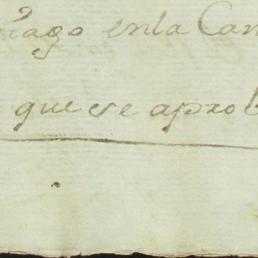 iago en la Can
que se aprob